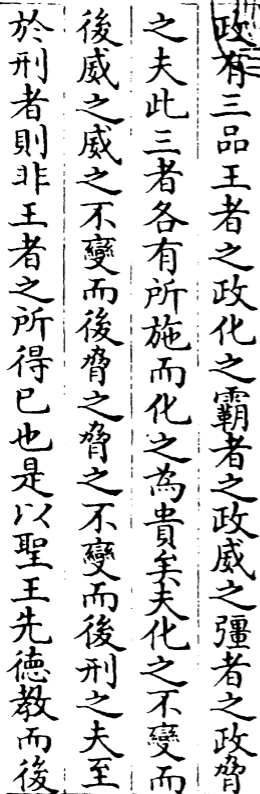 政有三品王者之政化之霸者之政威之彊者之政脅
之夫此三者各有所施而化之為貴矣夫化之不變而
後威之威之不變而後脅之脅之不變而後刑之夫至
於刑者則非王者之所得已也是以聖王先德教而後